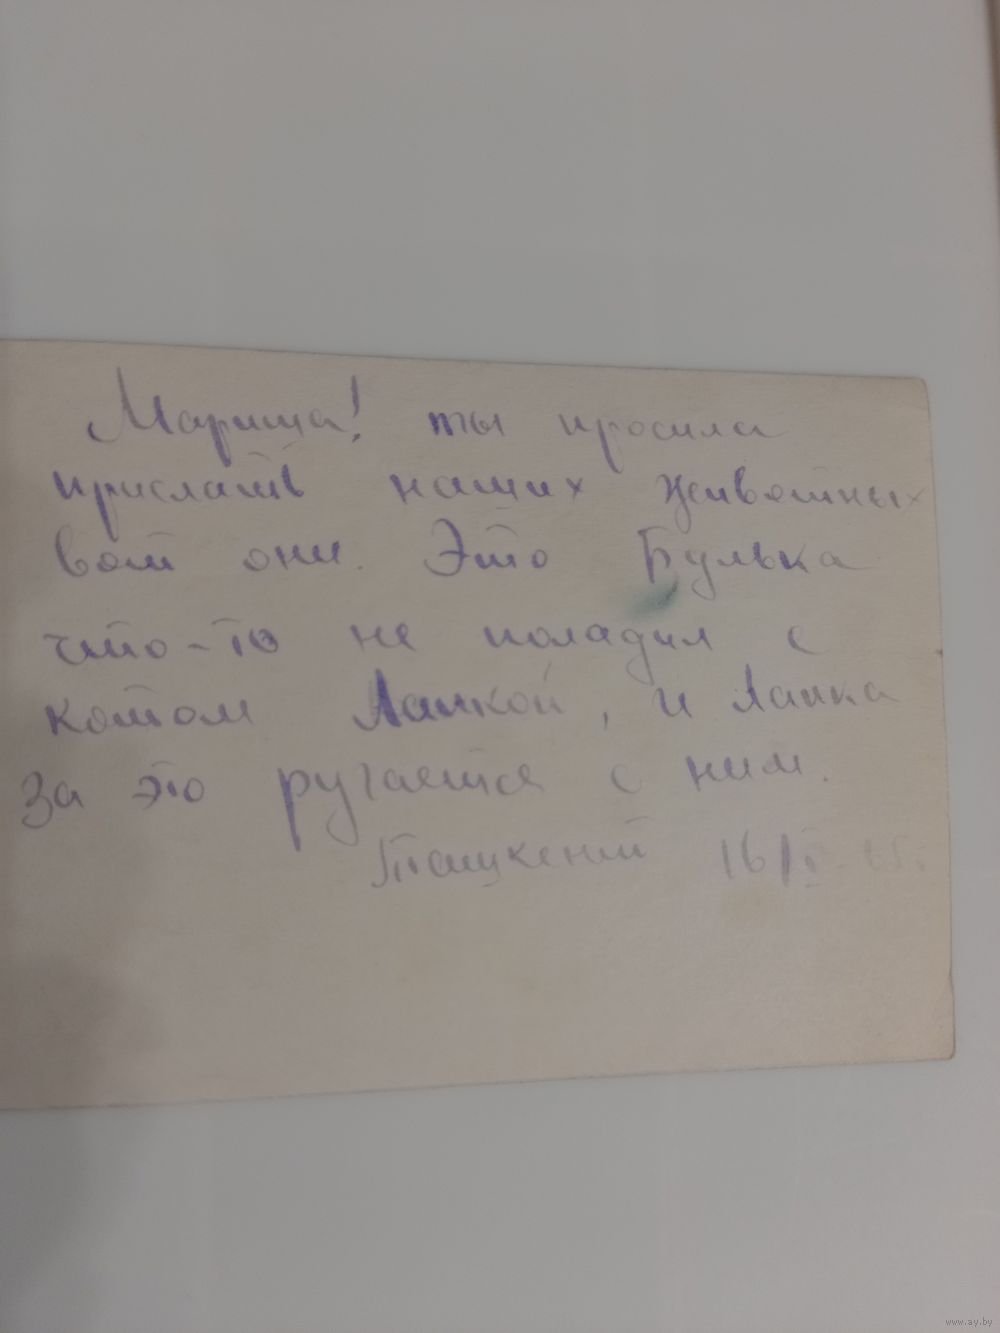 Мариша! ты просила
прислать наших животных
вот они. Это Булька
что-то не поладил с
котом Лапкой, и Лапка
за это ругается с ним.
Ташкент 16/I-65г.
www.ay.by